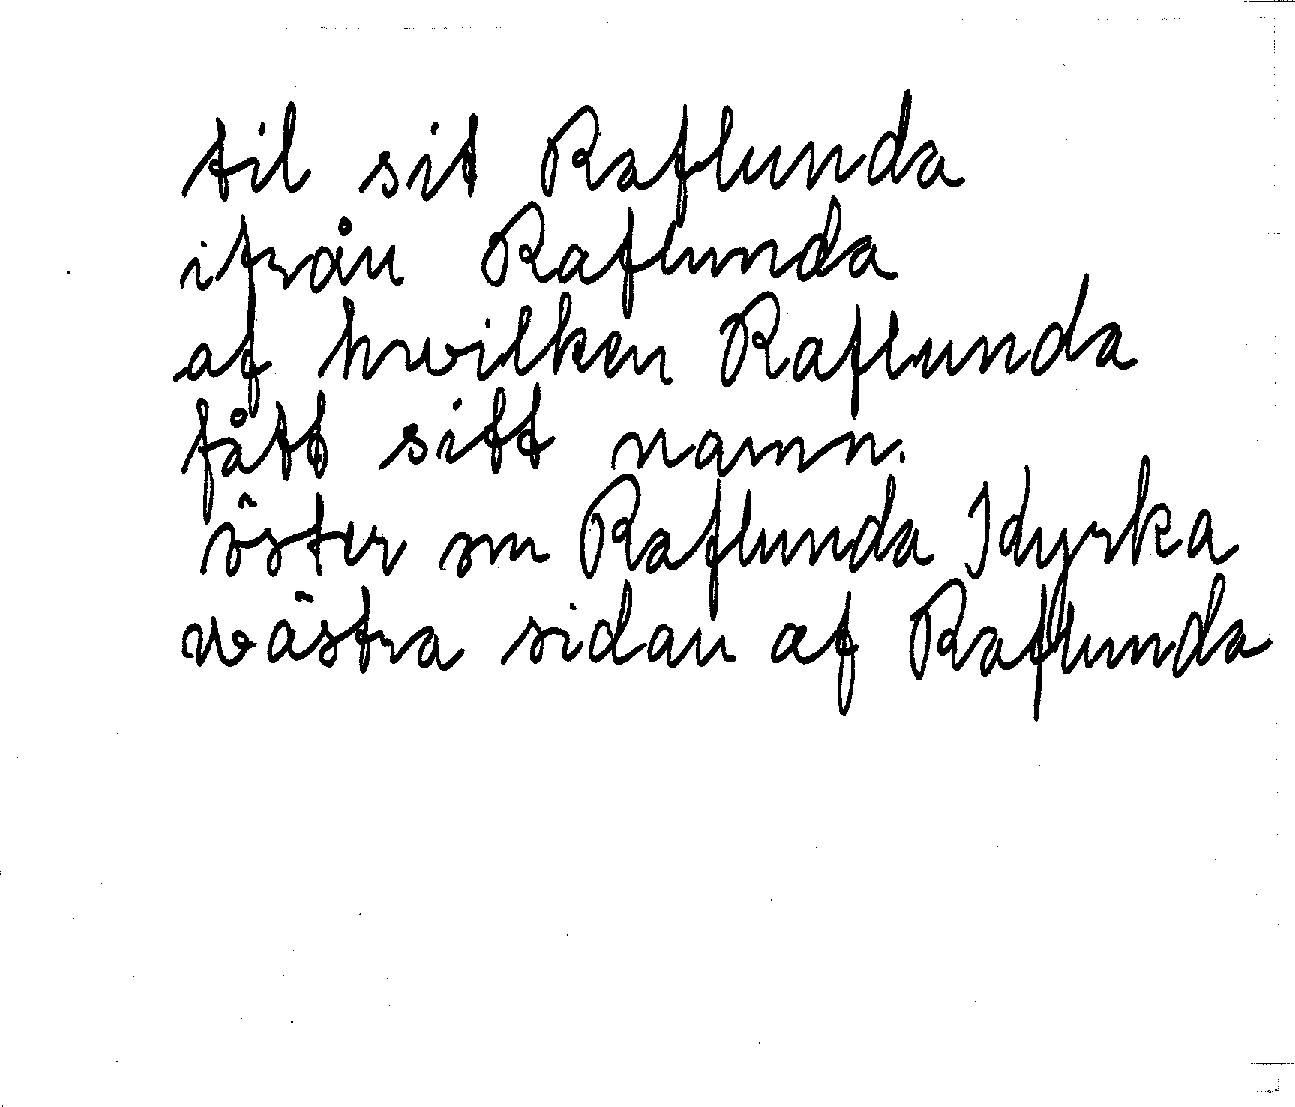 til sit Raflunda
ifrån Raflunda
af hwilken Raflunda
fått sitt namn.
öster om Raflunda Kyrka
wästra sidan af Raflunda